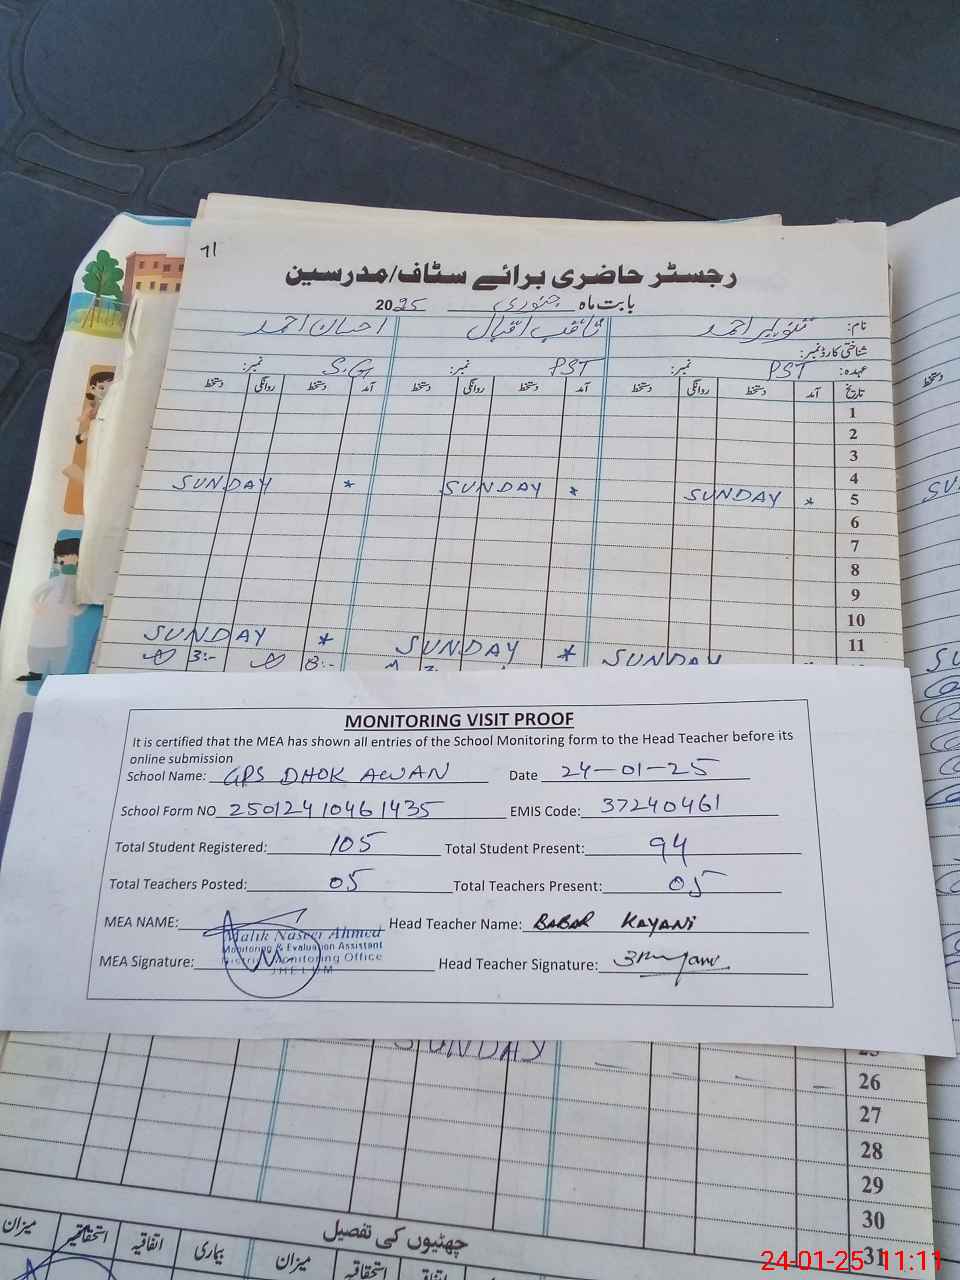 71
رجسٹر حاضری برائے سٹاف/مدرسین
بابت ماہ جنوری 2025
نام: تنویر احمد ثاقب اقبال احسان احمد
شناختی کارڈ نمبر:
عہدہ: PST نمبر: PST نمبر: S.G نمبر:
تاریخ آمد دستخط روانگی دستخط آمد دستخط روانگی دستخط آمد دستخط روانگی دستخط
1
2
3
4
SUNDAY * SUNDAY * SUNDAY * 5
6
7
8
9
10
SUNDAY * SUNDAY * SUNDAY 11
3:- 8:-
MONITORING VISIT PROOF
It is certified that the MEA has shown all entries of the School Monitoring form to the Head Teacher before its
online submission
School Name: GPS DHOK AWAN Date 24-01-25
School Form NO 25012410461435 EMIS Code: 37240461
Total Student Registered: 105 Total Student Present: 94
Total Teachers Posted: 05 Total Teachers Present: 05
MEA NAME: Head Teacher Name: BABAR KAYANI
Malik Naseer Ahmed
Monitoring & Evaluation Assistant
District Monitoring Office
JHELUM
MEA Signature: Head Teacher Signature:
SUNDAY 25
26
27
28
29
30
31
چھٹیوں کی تفصیل
میزان استحقاقیہ اتفاقیہ بیماری میزان استحقاقیہ
24-01-25 11:11